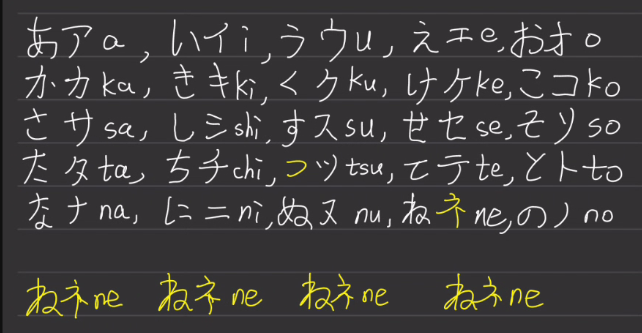 あアa, いイi, うウu, えエe, おオo
かカka, きキki, くクku, けケke, こコko
さサsa, しシshi, すスsu, せセse, そソso
たタta, ちチchi, つツtsu, てテte, とトto
なナna, にニni, ぬヌnu, ねネne, のノno
ねネne ねネne ねネne ねネne